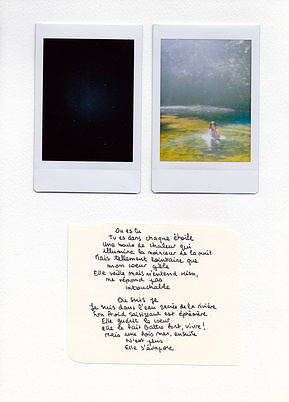 Où es tu
Tu es dans chaque étoile
Une boule de chaleur qui
illumine la noirceur de la nuit
Mais tellement lointaine que
mon cœur gèle
Elle veille mais n'entend rien,
ne répond pas
intouchable
Où suis je
Je suis dans l'eau glacée de la rivière
Son froid saisissant est éphémère
Elle guérit le cœur
Elle le fait battre fort, vivre!
Mais une fois mer, ensuite
N'est plus
Elle s'évapore